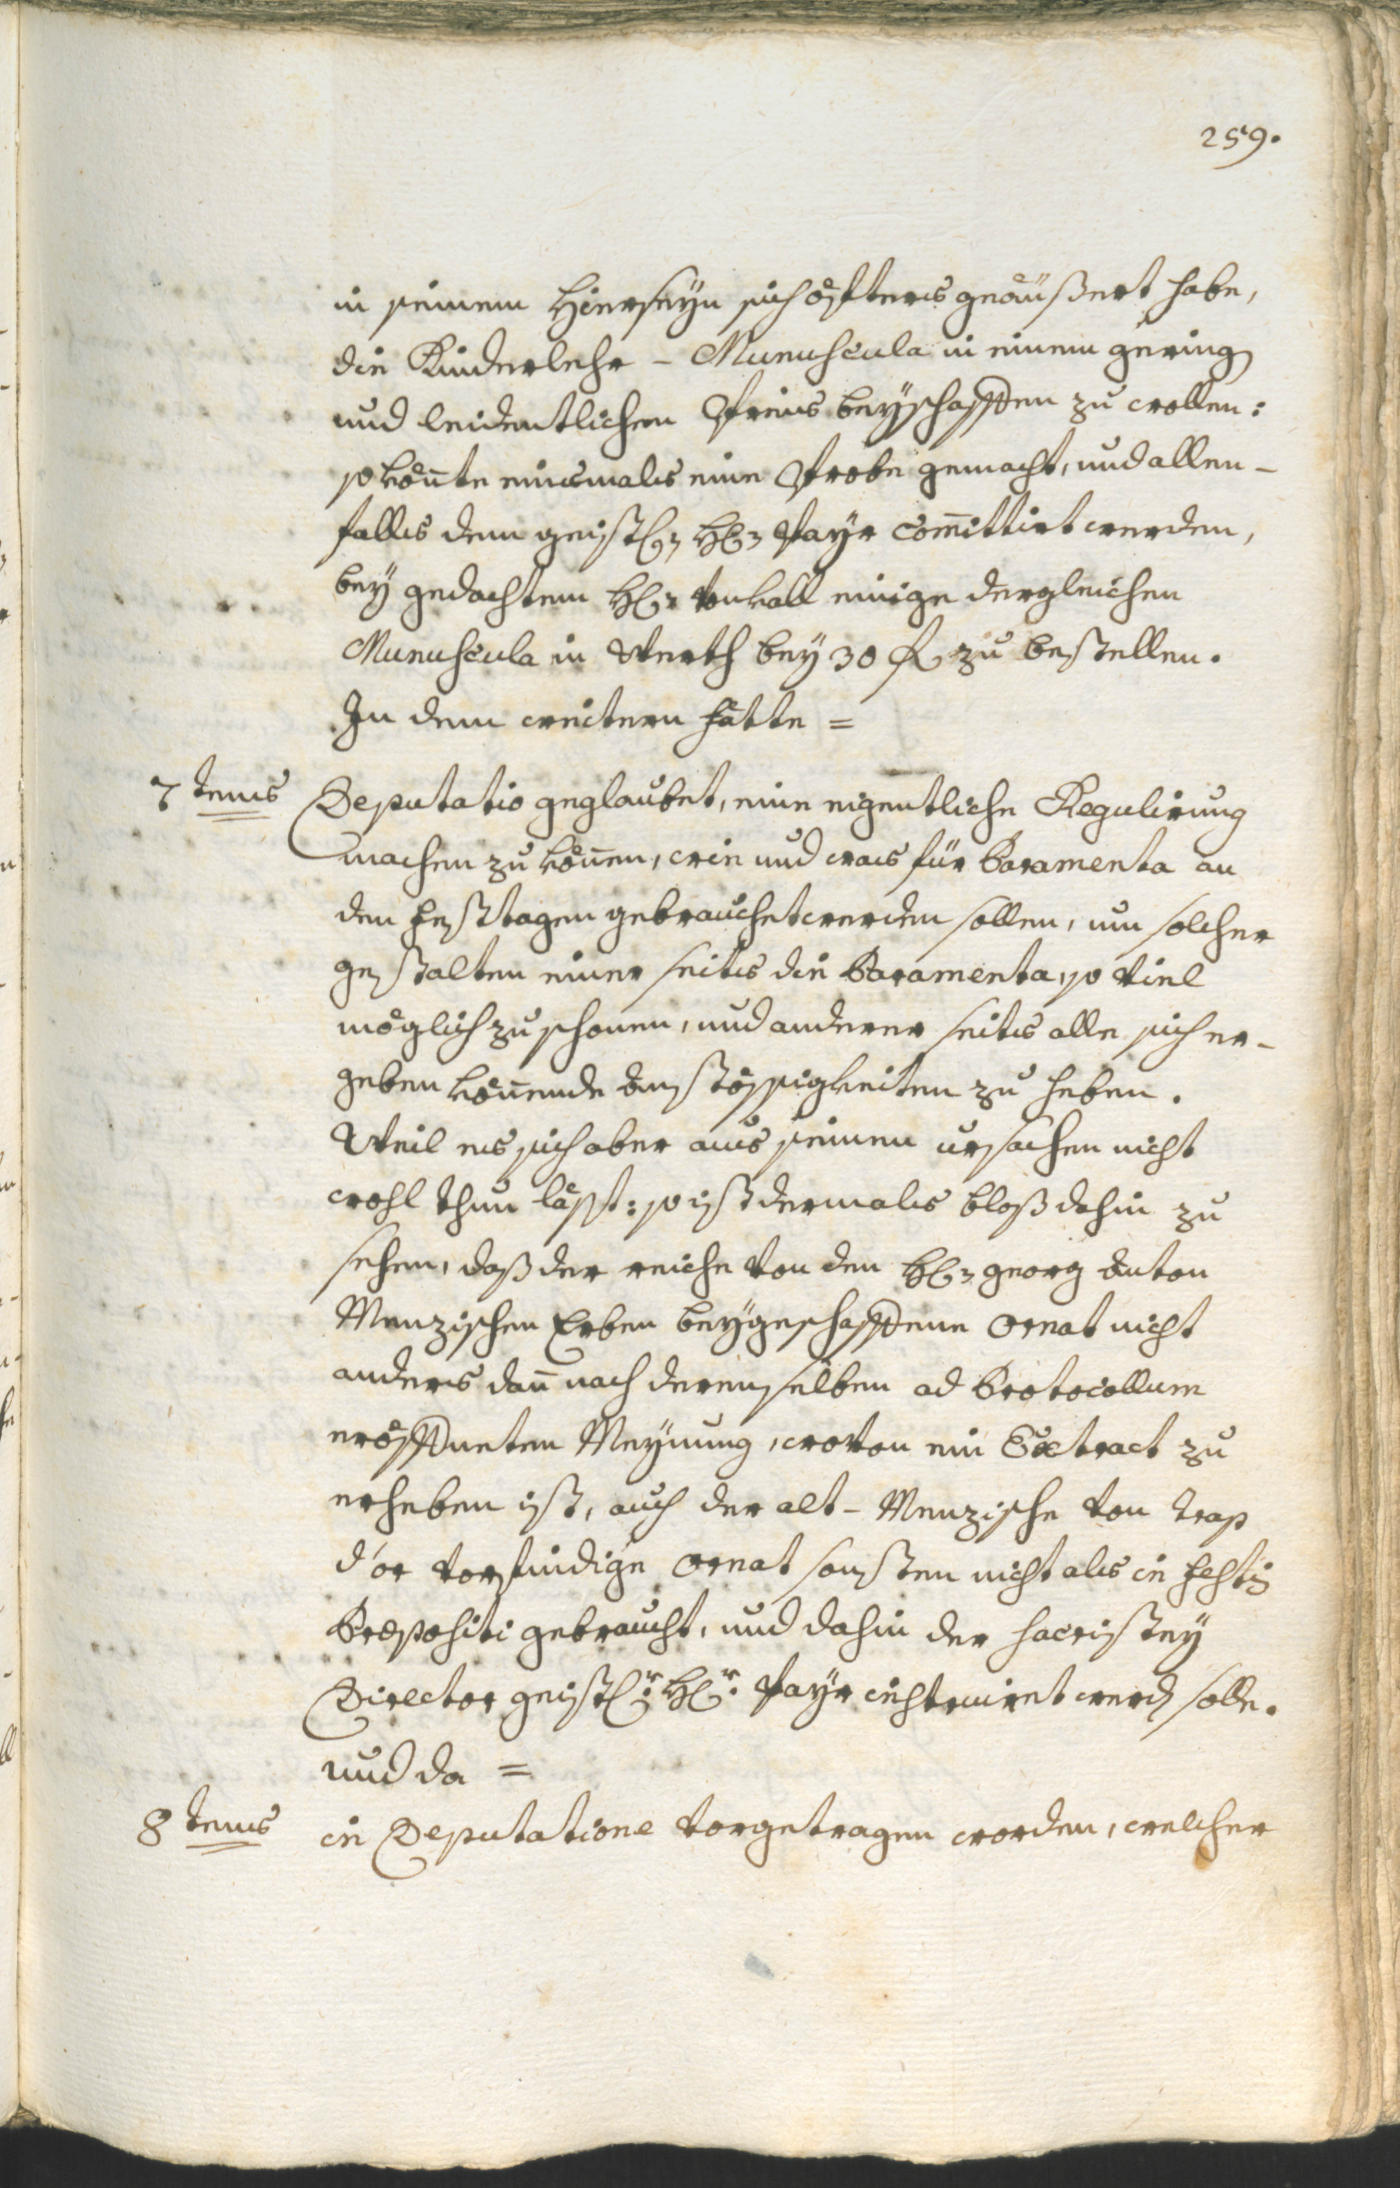 259.
in seinem Hierseÿn sich öfters geäüßert habe,
die Kinderlehr - Munuscula in einem gering
und leidentlichen Preis beÿschaffen zu wollen:
so könnte einsmals eine Probe gemacht, und allen-
falls dem geistl. H. Payr com̅ittirt werden,
beÿ gedachtem H. einige dergleichen
Munuscula in Werth beÿ 30 fl zu bestellen.
In dem weitern hätte =
7tens Deputatio geglaubet, eine eigentliche Regulirung
machen zu kön̅en, wie und was für Paramenta an
den Festtagen gebrauchet werden sollen, um solcher
gestalten einer seits die Paramenta, so viel
möglich zu schonen, und anderer seits alle sich er-
geben kön̅ende Anstössigkeiten zu heben.
Weil es sich aber aus seinen ursachen nicht
wohl thun lässt: so ist dermals bloß dahin zu
sehen, daß der reiche von den H. Georg Anton
Menzischen Erben beÿgeschaffene Ornat nicht
anders dan̅ nach derenselben ad Protocollum
eröffneten Meÿnung, wovon ein Extract zu
erheben ist, auch der alt - Menzische von trap
d'or vorfindige Ornat sonsten nicht als in festis
Præpositi gebraucht, und dahin der Sacristeÿ
Director geistl. H. Payr instruiret werd solle.
und da =
8tens in Deputatione vorgetragen worden, welcher